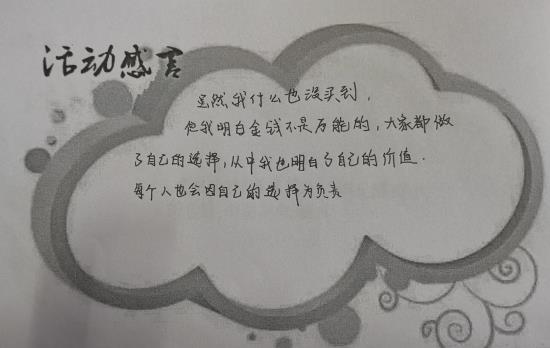 活动感言
虽然我什么也没买到，
但我明白金钱不是万能的，大家都做
了自己的选择，从中我也明白了自己的价值．
每个人也会因自己的选择为负责